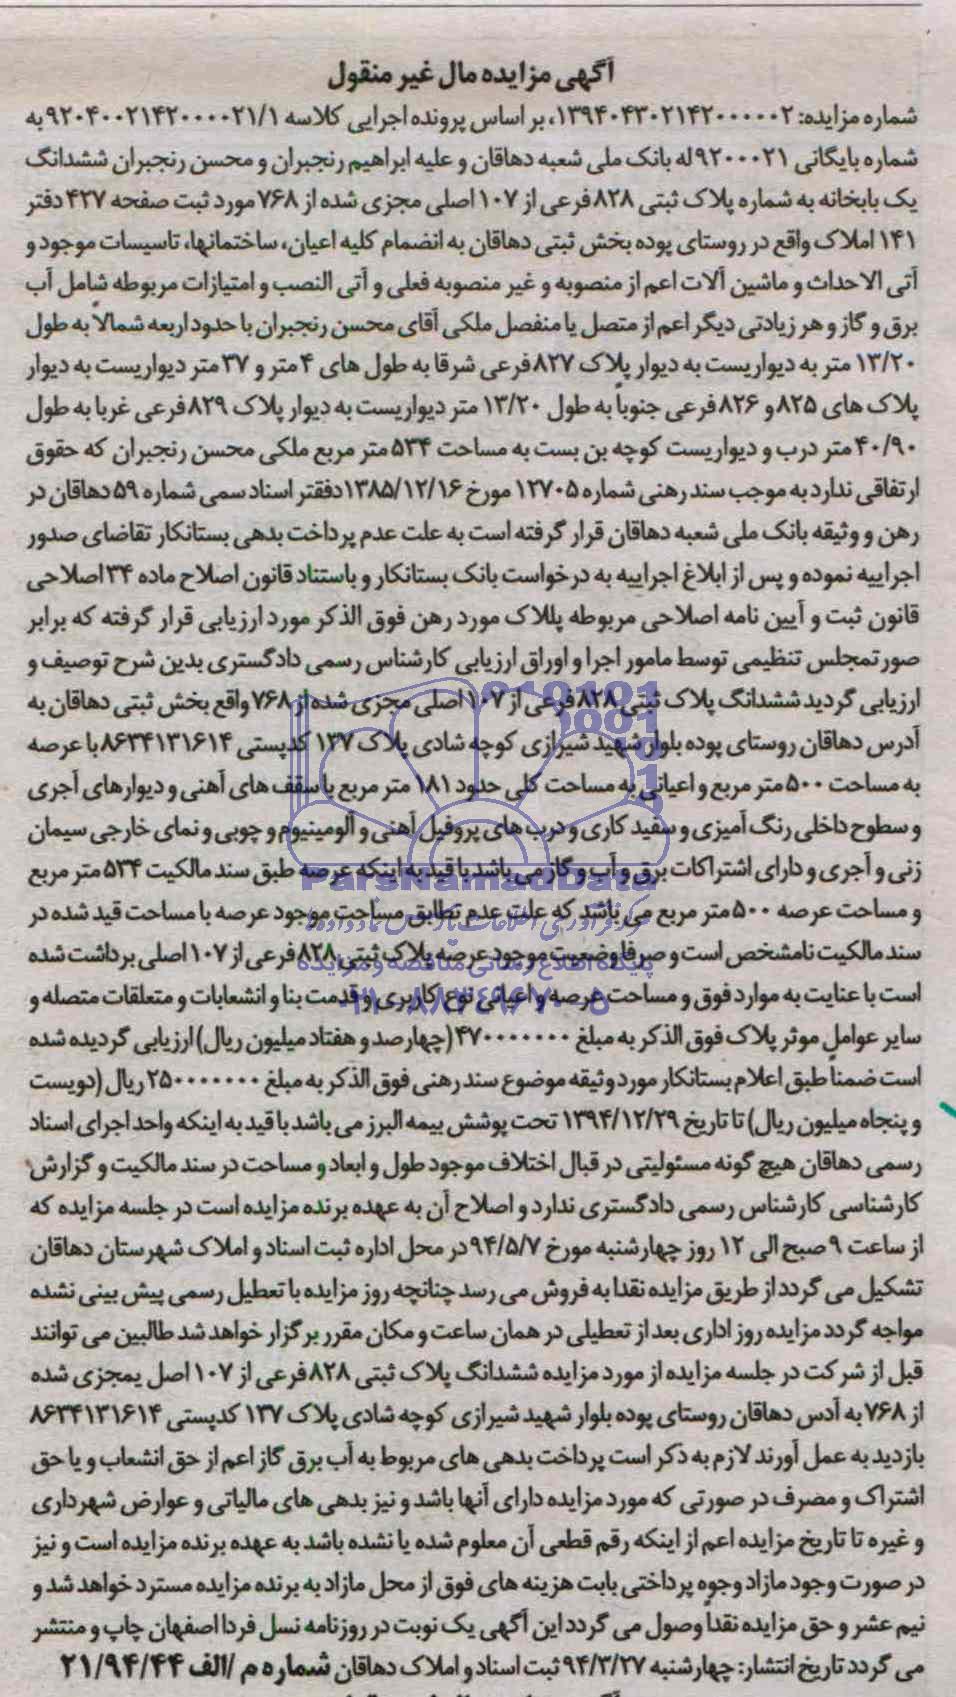 آگهی مزایده مال غیر منقول
شماره مزایده: ۱۳۹۴۰۴۳۰۲۱۴۲۰۰۰۰۰۰۲، بر اساس پرونده اجرایی کلاسه ۹۲۰۴۰۰۲۱۴۲۰۰۰۰۲۱/۱ به
شماره بایگانی ۹۲۰۰۰۲۱ له بانک ملی شعبه دهاقان و علیه ابراهیم رنجبران و محسن رنجبران ششدانگ
یک بابخانه به شماره پلاک ثبتی ۸۲۸ فرعی از ۱۰۷ اصلی مجزی شده از ۷۶۸ مورد ثبت صفحه ۴۲۷ دفتر
۱۴۱ املاک واقع در روستای پوده بخش ثبتی دهاقان به انضمام کلیه اعیان، ساختمانها، تاسیسات موجود و
آتی الاحداث و ماشین آلات اعم از منصوبه و غیر منصوبه فعلی و آتی النصب و امتیازات مربوطه شامل آب
برق و گاز و هر زیادتی دیگر اعم از متصل یا منفصل ملکی آقای محسن رنجبران با حدود اربعه شمالاً به طول
۱۳/۲۰ متر به دیواریست به دیوار پلاک ۸۲۷ فرعی شرقا به طول های ۴ متر و ۳۷ متر دیواریست به دیوار
پلاک های ۸۲۵ و ۸۲۶ فرعی جنوباً به طول ۱۳/۲۰ متر دیواریست به دیوار پلاک ۸۲۹ فرعی غربا به طول
۴۰/۹۰ متر درب و دیواریست کوچه بن بست به مساحت ۵۳۴ متر مربع ملکی محسن رنجبران که حقوق
ارتفاقی ندارد به موجب سند رهنی شماره ۱۲۷۰۵ مورخ ۱۳۸۵/۱۲/۱۶ دفقتر اسناد سمی شماره ۵۹ دهاقان در
رهن و وثیقه بانک ملی شعبه دهاقان قرار گرفته است به علت عدم پرداخت بدهی بستانکار تقاضای صدور
اجراییه نموده و پس از ابلاغ اجراییه به درخواست بانک بستانکار و باستناد قانون اصلاح ماده ۳۴ اصلاحی
قانون ثبت و آیین نامه اصلاحی مربوطه پللاک مورد رهن فوق الذکر مورد ارزیابی قرار گرفته که برابر
صورتمجلس تنظیمی توسط مامور اجرا و اوراق ارزیابی کارشناس رسمی دادگستری بدین شرح توصیف و
ارزیابی گردید ششدانگ پلاک ثبتی ۸۲۸ فرعی از ۱۰۷ اصلی مجزی شده از ۷۶۸ واقع بخش ثبتی دهاقان به
آدرس دهاقان روستای پوده بلوار شهید شیرازی کوچه شادی پلاک ۱۳۷ کدپستی ۸۶۳۴۱۳۱۶۱۴ با عرصه
به مساحت ۵۰۰ متر مربع و اعیانی به مساحت کلی حدود ۱۸۱ متر مربع با سقف های آهنی و دیوارهای آجری
و سطوح داخلی رنگ آمیزی و سفید کاری و درب های پروفیل آهنی و آلومینیوم و چوبی و نمای خارجی سیمان
زنی و آجری و دارای اشتراکات برق و آب و گاز می باشد با قید به اینکه عرصه طبق سند مالکیت ۵۳۴ متر مربع
و مساحت عرصه ۵۰۰ متر مربع می باشد که علت عدم تطابق مساحت موجود عرصه با مساحت قید شده در
سند مالکیت نامشخص است و صرفا وضعیت موجود عرصه پلاک ثبتی ۸۲۸ فرعی از ۱۰۷ اصلی برداشت شده
است با عنایت به موارد فوق و مساحت عرصه و اعیانی نوع کاربری و قدمت بنا و انشعابات و متعلقات متصله و
سایر عوامل موثر پلاک فوق الذکر به مبلغ ۴۷۰۰۰۰۰۰۰ (چهارصد و هفتاد میلیون ریال) ارزیابی گردیده شده
است ضمناً طبق اعلام بستانکار مورد وثیقه موضوع سند رهنی فوق الذکر به مبلغ ۲۵۰۰۰۰۰۰۰ ریال (دویست
و پنجاه میلیون ریال) تا تاریخ ۱۳۹۴/۱۲/۲۹ تحت پوشش بیمه البرز می باشد با قید به اینکه واحد اجرای اسناد
رسمی دهاقان هیچ گونه مسئولیتی در قبال اختلاف موجود طول و ابعاد و مساحت در سند مالکیت و گزارش
کارشناسی کارشناس رسمی دادگستری ندارد و اصلاح آن به عهده برنده مزایده است در جلسه مزایده که
از ساعت ۹ صبح الی ۱۲ روز چهارشنبه مورخ ۹۴/۵/۷ در محل اداره ثبت اسناد و املاک شهرستان دهاقان
تشکیل می گردد از طریق مزایده نقدا به فروش می رسد چنانچه روز مزایده با تعطیل رسمی پیش بینی نشده
مواجه گردد مزایده روز اداری بعد از تعطیلی در همان ساعت و مکان مقرر برگزار خواهد شد طالبین می توانند
قبل از شرکت در جلسه مزایده از مورد مزایده ششدانگ پلاک ثبتی ۸۲۸ فرعی از ۱۰۷ اصل یمجزی شده
از ۷۶۸ به آدس دهاقان روستای پوده بلوار شهید شیرازی کوچه شادی پلاک ۱۳۷ کدپستی ۸۶۳۴۱۳۱۶۱۴
بازدید به عمل آورند لازم به ذکر است پرداخت بدهی های مربوط به آب برق گاز اعم از حق انشعاب و یا حق
اشتراک و مصرف در صورتی که مورد مزایده دارای آنها باشد و نیز بدهی های مالیاتی و عوارض شهرداری
و غیره تا تاریخ مزایده اعم از اینکه رقم قطعی آن معلوم شده یا نشده باشد به عهده برنده مزایده است و نیز
در صورت وجود مازاد وجوه پرداختی بابت هزینه های فوق از محل مازاد به برنده مزایده مسترد خواهد شد و
نیم عشر و حق مزایده نقداً وصول می گردد این آگهی یک نوبت در روزنامه نسل فردا اصفهان چاپ و منتشر
می گردد تاریخ انتشار: چهارشنبه ۹۴/۳/۲۷ ثبت اسناد و املاک دهاقان شماره م /الف ۲۱/۹۴/۴۴
ParsNamadData
مرکز فرآوری اطلاعات پارس نماد داده ها
پایگاه اطلاع رسانی مناقصه و مزایده
۰۲۱-۸۸۳۴۹۶۷۰-۵